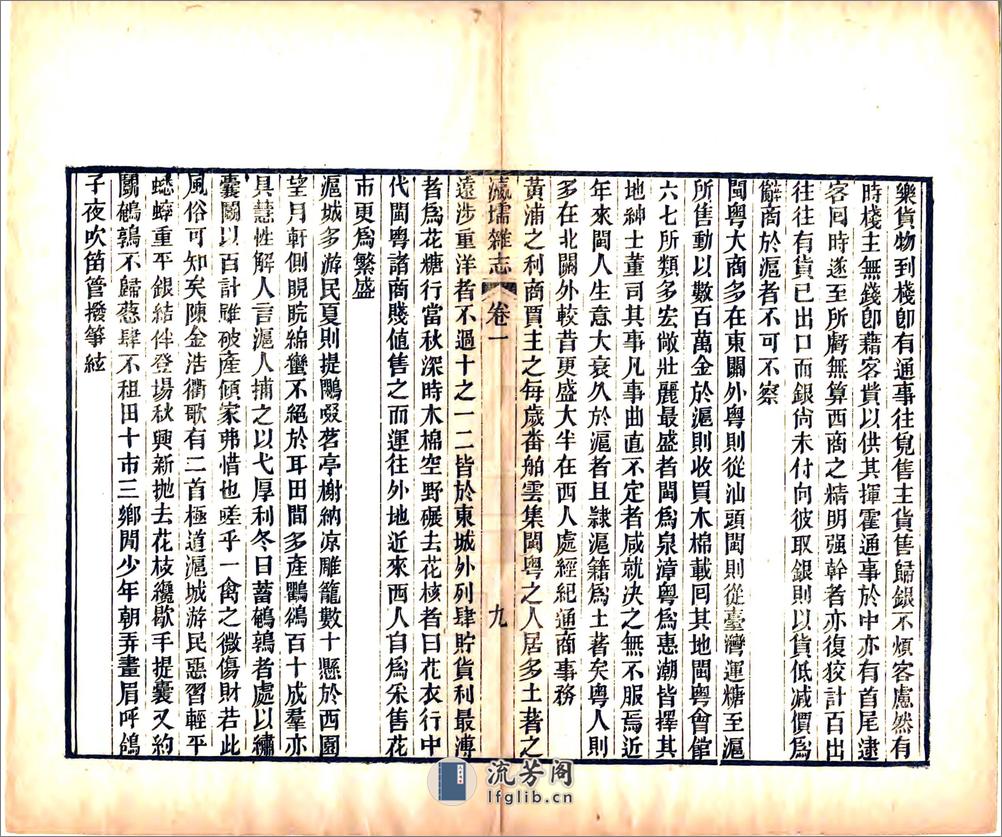 樂貨物到棧卽有通事往覓售主貨售歸銀不煩客慮然有
時棧主無錢卽藉客貲以供其揮霍通事於中亦有首尾逮
客回時遂至所虧無算西商之精明强幹者亦復狡計百出
往往有貨已出口而銀尙未付向彼取銀則以貨低減價爲
辭商於滬者不可不察
閩粤大商多在東關外粤則從汕頭閩則從臺灣運糖至滬
所售動以數百萬金於滬則收買木棉載回其地閩粤會館
六七所類多宏敞壯麗最盛者閩爲泉漳粤爲惠潮皆擇其
地紳士董司其事凡事曲直不定者咸就決之無不服焉近
年來閩人生意大衰久於滬者且隸滬籍爲土著矣粤人則
多在北關外較昔更盛大半在西人處經紀通商事務
黃浦之利商賈主之每歲番舶雲集閩粤之人居多土著之
瀛壖雜志 卷一 九
遠涉重洋者不過十之一二皆於東城外列肆貯貨利最溥
者爲花糖行當秋深時木棉空野碾去花核者曰花衣行中
代閩粤諸商賤值售之而運往外地近來西人自爲采售花
市更爲繁盛
滬城多游民夏則提鷳啜茗亭榭納凉雕籠數十懸於西園
望月軒側睍睆綿蠻不絕於耳田間多產鸜鵒百十成羣亦
具慧性解人言滬人捕之以弋厚利冬日蓄鵪鶉者處以繡
囊鬭以百計雖破產傾家弗惜也嗟乎一禽之微傷財若此
風俗可知矣陳金浩衢歌有二首極道滬城游民惡習輕平
蟋蟀重平銀結伴登場秋興新拋去花枝纔歇手提囊又約
鬭鵪鶉不歸廛肆不租田十市三鄉閒少年朝弄畫眉呼鴿
子夜吹笛管撥箏絃
流芳阁
lfglib.cn